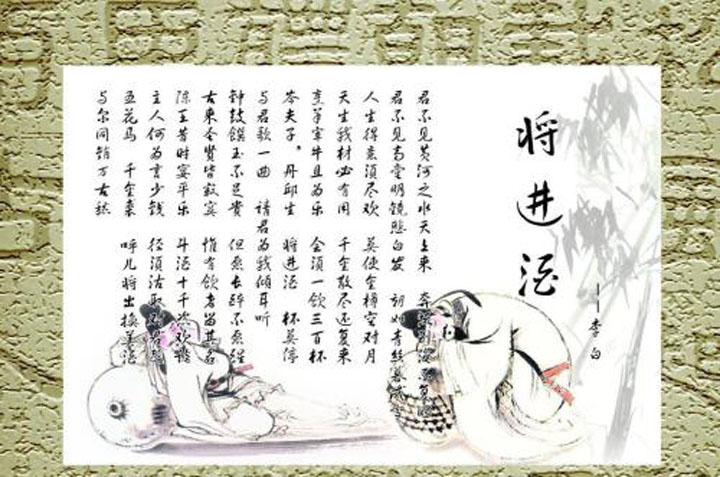 将进酒
——李白
君不见黄河之水天上来 奔流到海不复回
君不见高堂明镜悲白发 朝如青丝暮成
人生得意须尽欢 莫使金樽空对月
天生我材必有用 千金散尽还复来
烹羊宰牛且为乐 会须一饮三百杯
岑夫子。丹邱生 将进酒 杯莫停
与君歌一曲 请君为我倾耳听
钟鼓馔玉不足贵 但愿长醉不愿醒
古来圣贤皆寂寞 惟有饮者留其名
陈王昔时宴平乐 斗酒十千恣欢谑
主人何为言少钱 径须沽取
五花马 千金裘 呼儿将出换美酒
与尔同销万古愁